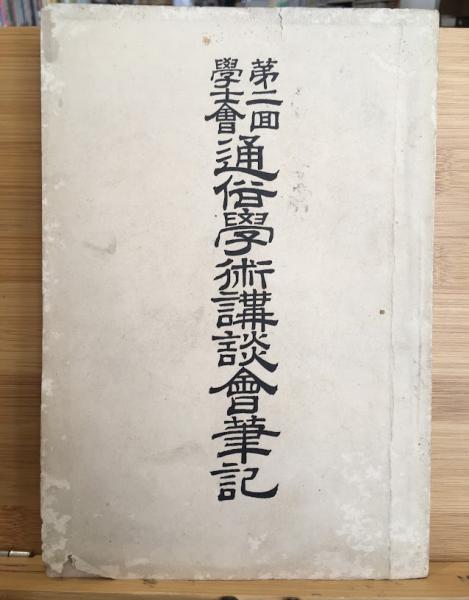 第二囘
學士會
通俗學術講談會筆記